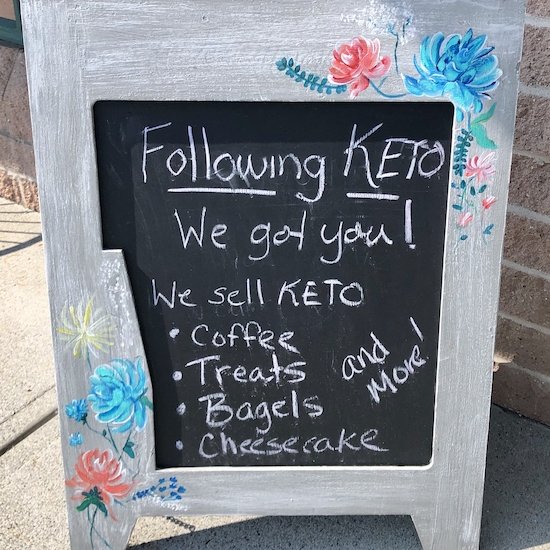 Following KETO
We got you!
We sell KETO
• Coffee
• Treats
• Bagels
• Cheesecake
and
More!